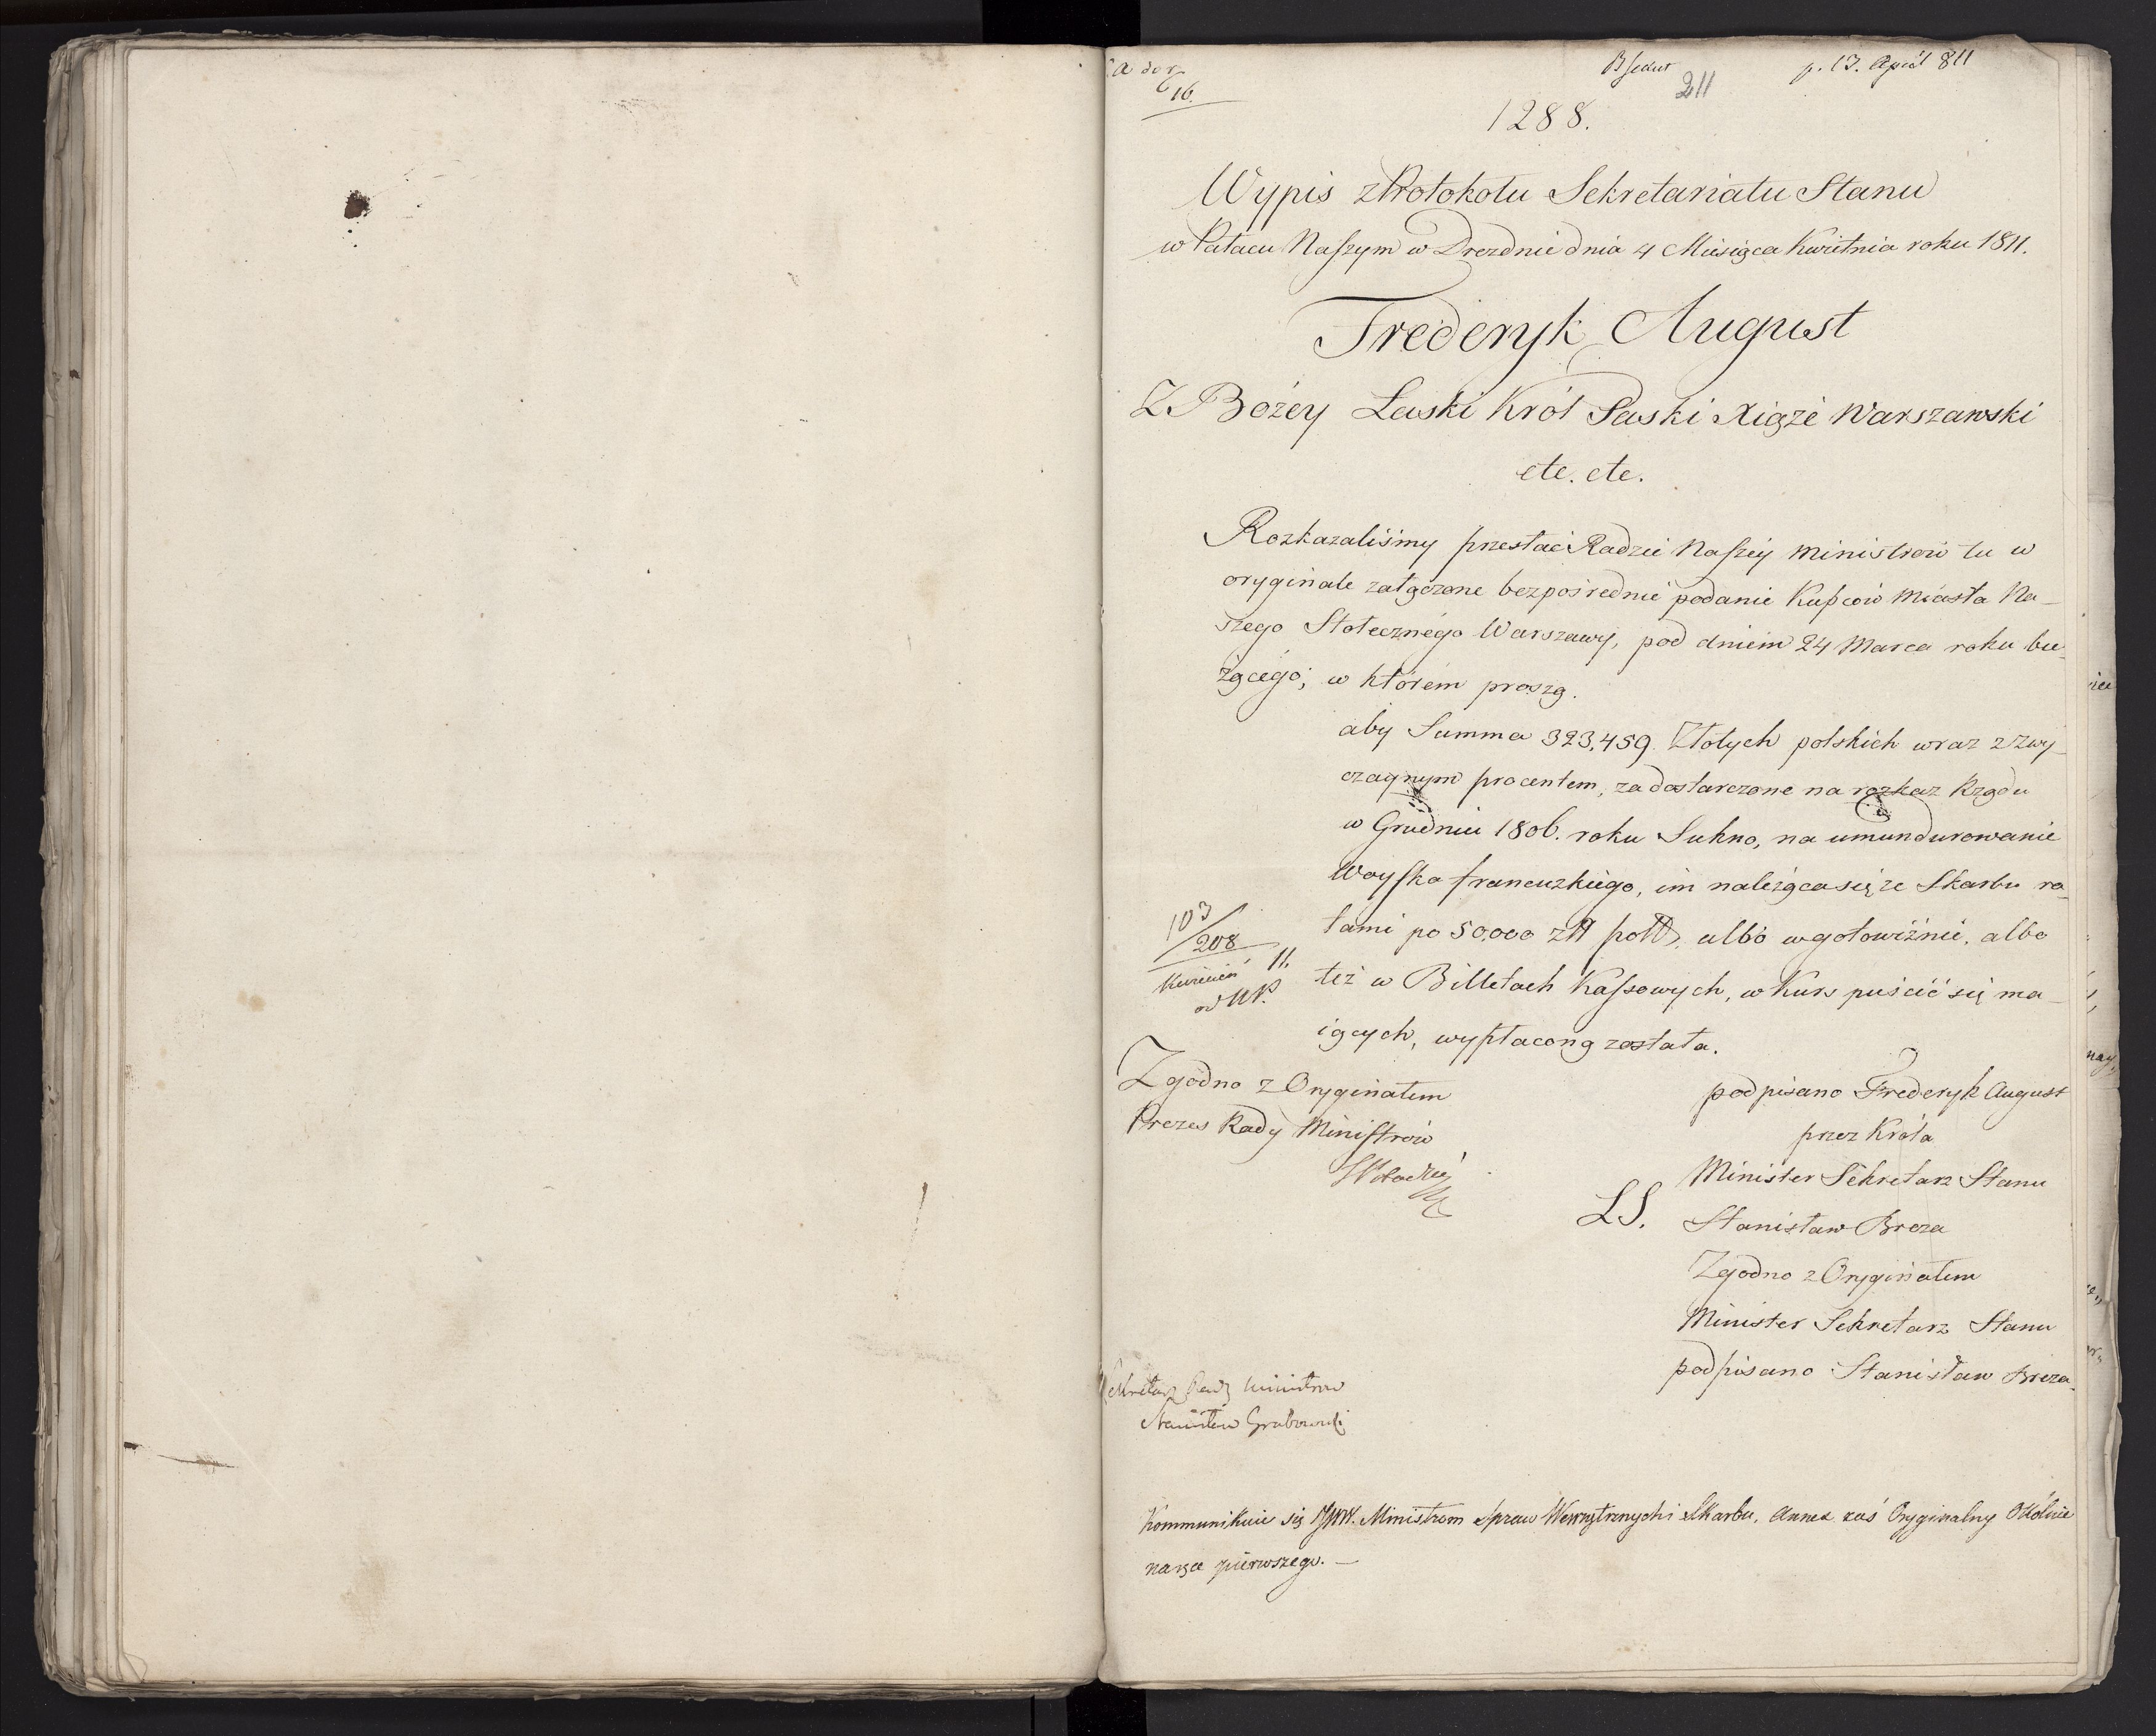 16.
211
p. 13. April 811
1288.
Wypis z Protokołu Sekretariatu Stanu
w Pałacu Naszym w Dreznie dnia 4 Miesiąca Kwietnia roku 1811.
Frederyk August
Z Bożey Łaski Król Saski Xiąże Warszawski
etc. etc.
Rozkazaliśmy przesłać Radzie Naszéy Ministrów tu w
oryginale załączone bezpośrednie podanie Kupców Miasta Na-
szego Stołecznégo Warszawy, pod dniem 24 Marca roku bie-
żącégo, w którém proszą.
aby Summa 323,459 Złotych polskich wraz z zwy-
czaynym procentem, za dostarczone na rozkaz Rządu
w Grudniu 1806. roku Sukno, na umundurowanie
Woyska francuzkiégo, im należąca się ze Skarbu ra-
tami po 50,000 złł poll, albo w gotowiźnie, albo
też w Billetach Kassowych, w Kurs puścić się ma-
iących, wypłaconą została.
103
208
Kwiecień 11.
Zgodno z Oryginałem
Prezes Rady Ministrów
podpisano Frederyk August
przez Króla
Minister Sekretarz Stanu
LS. Stanisław Breza
Zgodno z Oryginałem
Minister Sekretarz Stanu
podpisano Stanisław Breza
Sekretarz Rady Ministrow
Stanisław Grabowski
Kommunikuie się JWW. Ministrom Spraw Wewnętrznych i Skarbu, Annex zaś Oryginalny
na ręce pierwszego. —